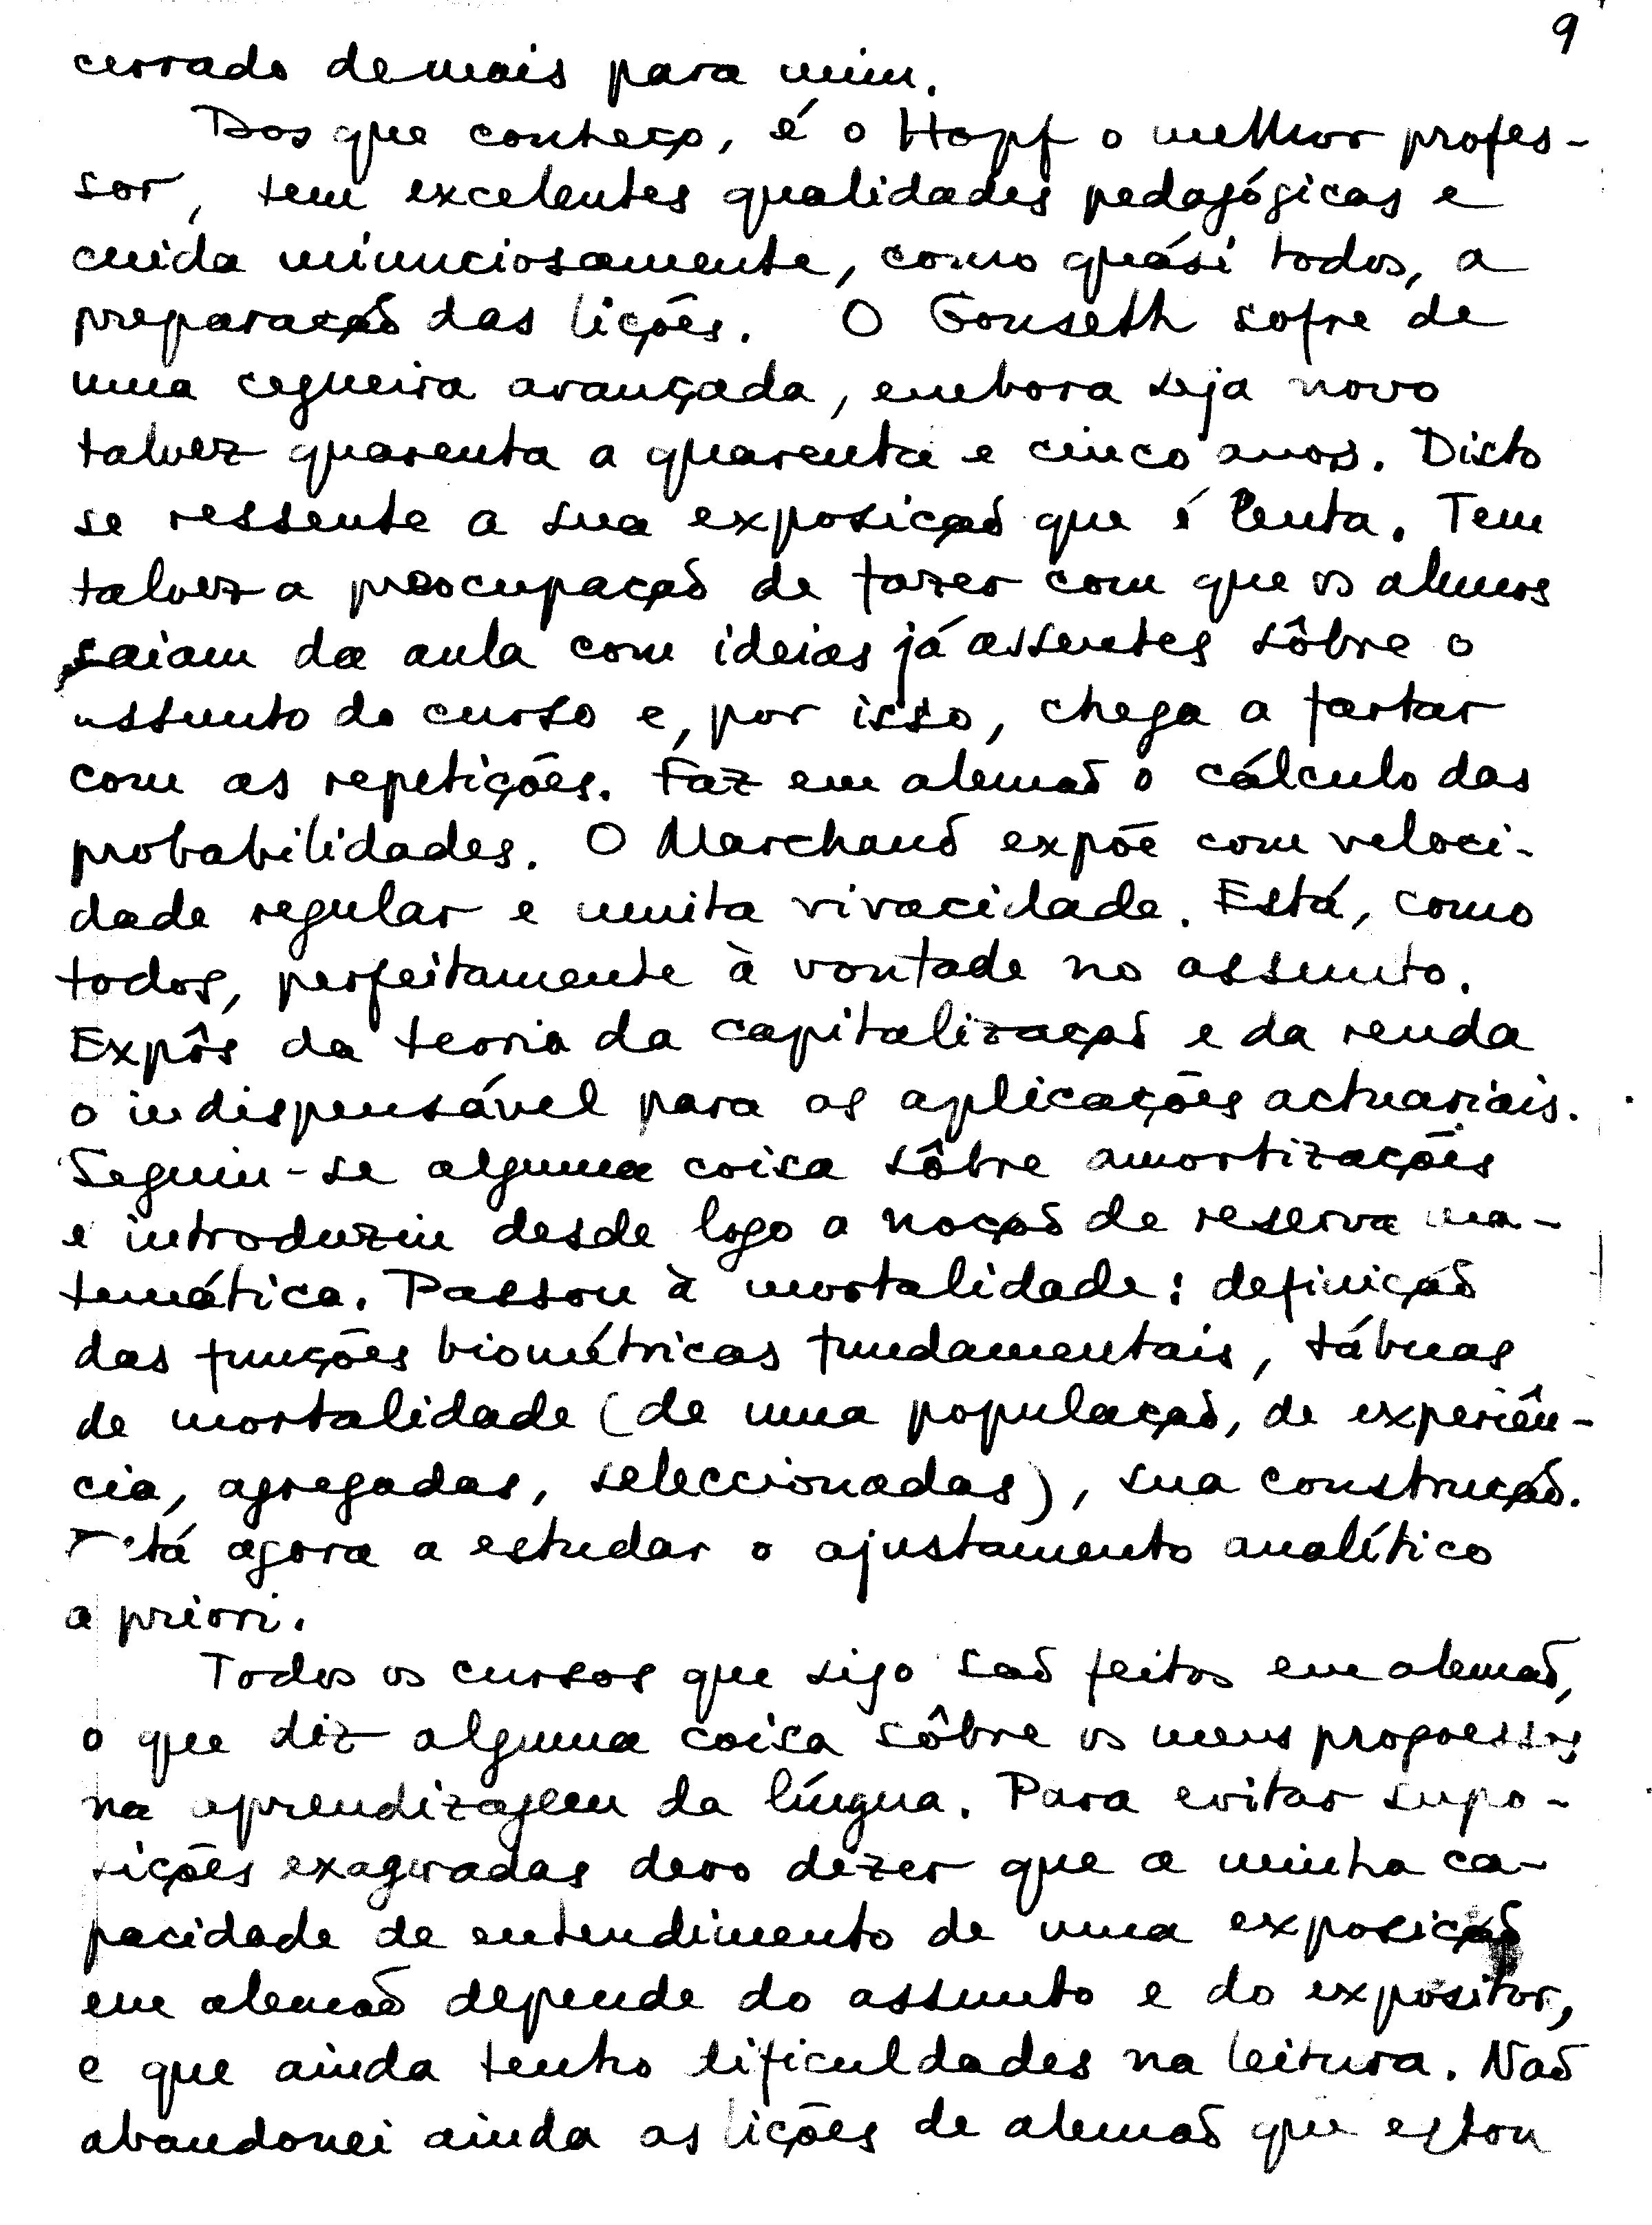 9
cerrado demais para mim.
Dos que conheço, é o Hopf o melhor profes-
sor, tem excelentes qualidades pedagógicas e
cuida minunciosamente, como quási todos, a
preparação das lições. O Gonseth sofre de
uma cegueira avançada, embora seja novo
talvez quarenta a quarenta e cinco anos. Disto
se ressente a sua exposição que é lenta. Tem
talvez a preocupação de fazer com que os alunos
saiam da aula com ideias já assentes sôbre o
assunto do curso e, por isso, chega a fartar
com as repetições. Faz em alemão o cálculo das
probabilidades. O Marchand expõe com veloci-
dade regular e muita vivacidade. Está, como
todos, perfeitamente à vontade no assunto.
Expôs da teoria da capitalização e da renda
o indispensável para as aplicações actuariais.
Seguiu-se alguma coisa sôbre amortizações
e introduziu desde logo a noção de reserva ma-
temática. Passou à mortalidade: definição
das funções biométricas fundamentais, tábuas
de mortalidade (de uma população, de experiên-
cia, agregadas, seleccionadas), sua construção.
Está agora a estudar o ajustamento analítico
a priori.
Todos os cursos que sigo são feitos em alemão,
o que diz alguma coisa sôbre os meus progressos
na aprendizagem da língua. Para evitar supo-
sições exageradas devo dizer que a minha ca-
pacidade de entendimento de uma exposição
em alemão depende do assunto e do expositor,
e que ainda tenho dificuldades na leitura. Não
abandonei ainda as lições de alemão que estou